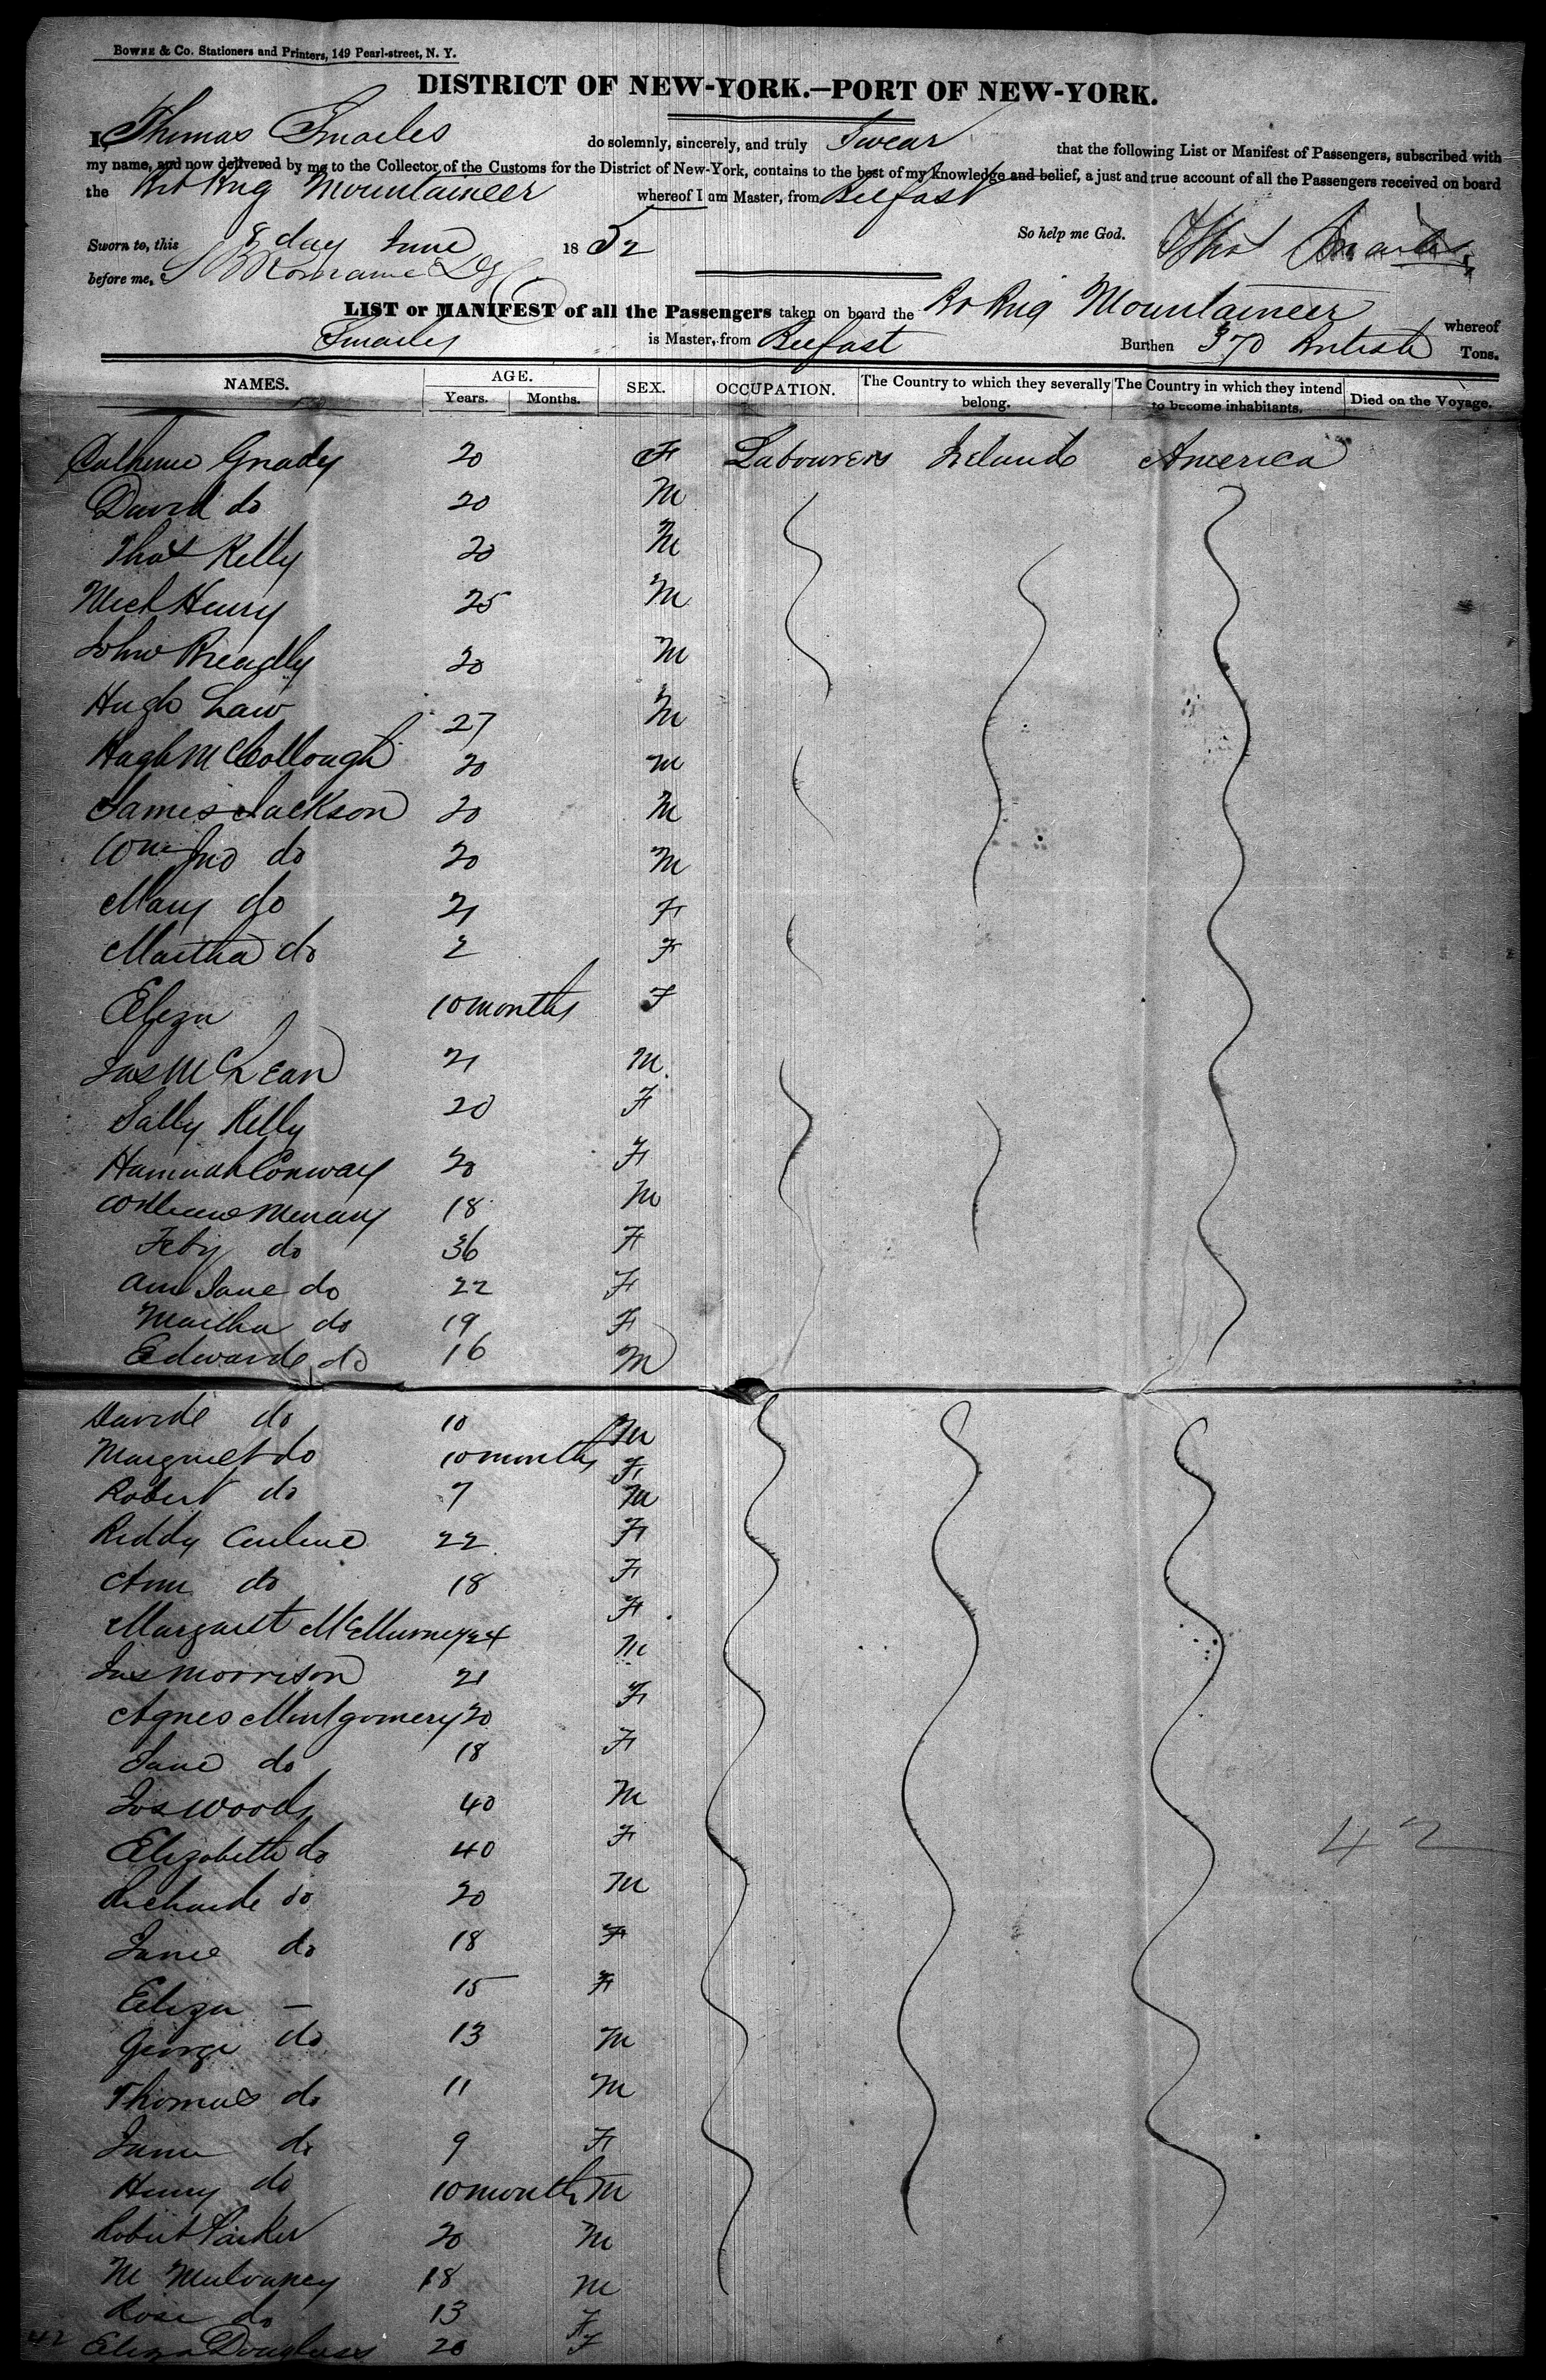 BOWNE & Co. Stationers and Printers, 149 Pearl-street, N. Y.
DISTRICT OF NEW-YORK.—PORT OF NEW-YORK.
I, Thomas Smailes do solemnly, sincerely, and truly Swear that the following List or Manifest of Passengers, subscribed with
my name, and now delivered by me to the Collector of the Customs for the District of New-York, contains to the best of my knowledge and belief, a just and true account of all the Passengers received on board
the Brig Mountaineer whereof I am Master, from Belfast
Sworn to, this 8 day June 1852 So help me God. Thos
before me,
LIST or MANIFEST of all the Passengers taken on board the Br Brig Mountaineer whereof
Smailes is Master, from Belfast Burthen 370 British Tons.
NAMES. AGE. Years. Months. SEX. OCCUPATION. The Country to which they severally belong. The Country in which they intend to become inhabitants. Died on the Voyage.
Grady 20 F Labourers Ireland America
David do 20 M
Thos Kelly 20 M
Mich Henry 25 M
John 20 M
Hugh Law 27 M
Hugh McCollough 20 M
James Jackson 20 M
Wm Jno do 20 M
Mary do 21 F
Martha do 2 F
Eliza 10 months F
Jas McLean 21 M
Sally Kelly 20 F
Hannah Conway 20 F
William 18 M
do 36 F
Ann Jane do 22 F
Martha do 19 F
Edward do 16 M
David do 10 M
Margaret do 10 months F
Robert do 7 M
Reddy 22 F
Ann do 18 F
Margaret 24 F
Jas Morrison 21 M
Agnes Montgomery 20 F
Jane do 18 F
Jos Woods 40 M
Elizabeth do 40 F
Richard do 20 M
Jane do 18 F
Eliza — 15 F
George do 13 M
Thomas do 11 M
do 9 F
42
Henry do 10 months M
Robert Parker 20 M
M Mulvaney 18 M
Rose do 13 F
42 Eliza Douglass 20 F